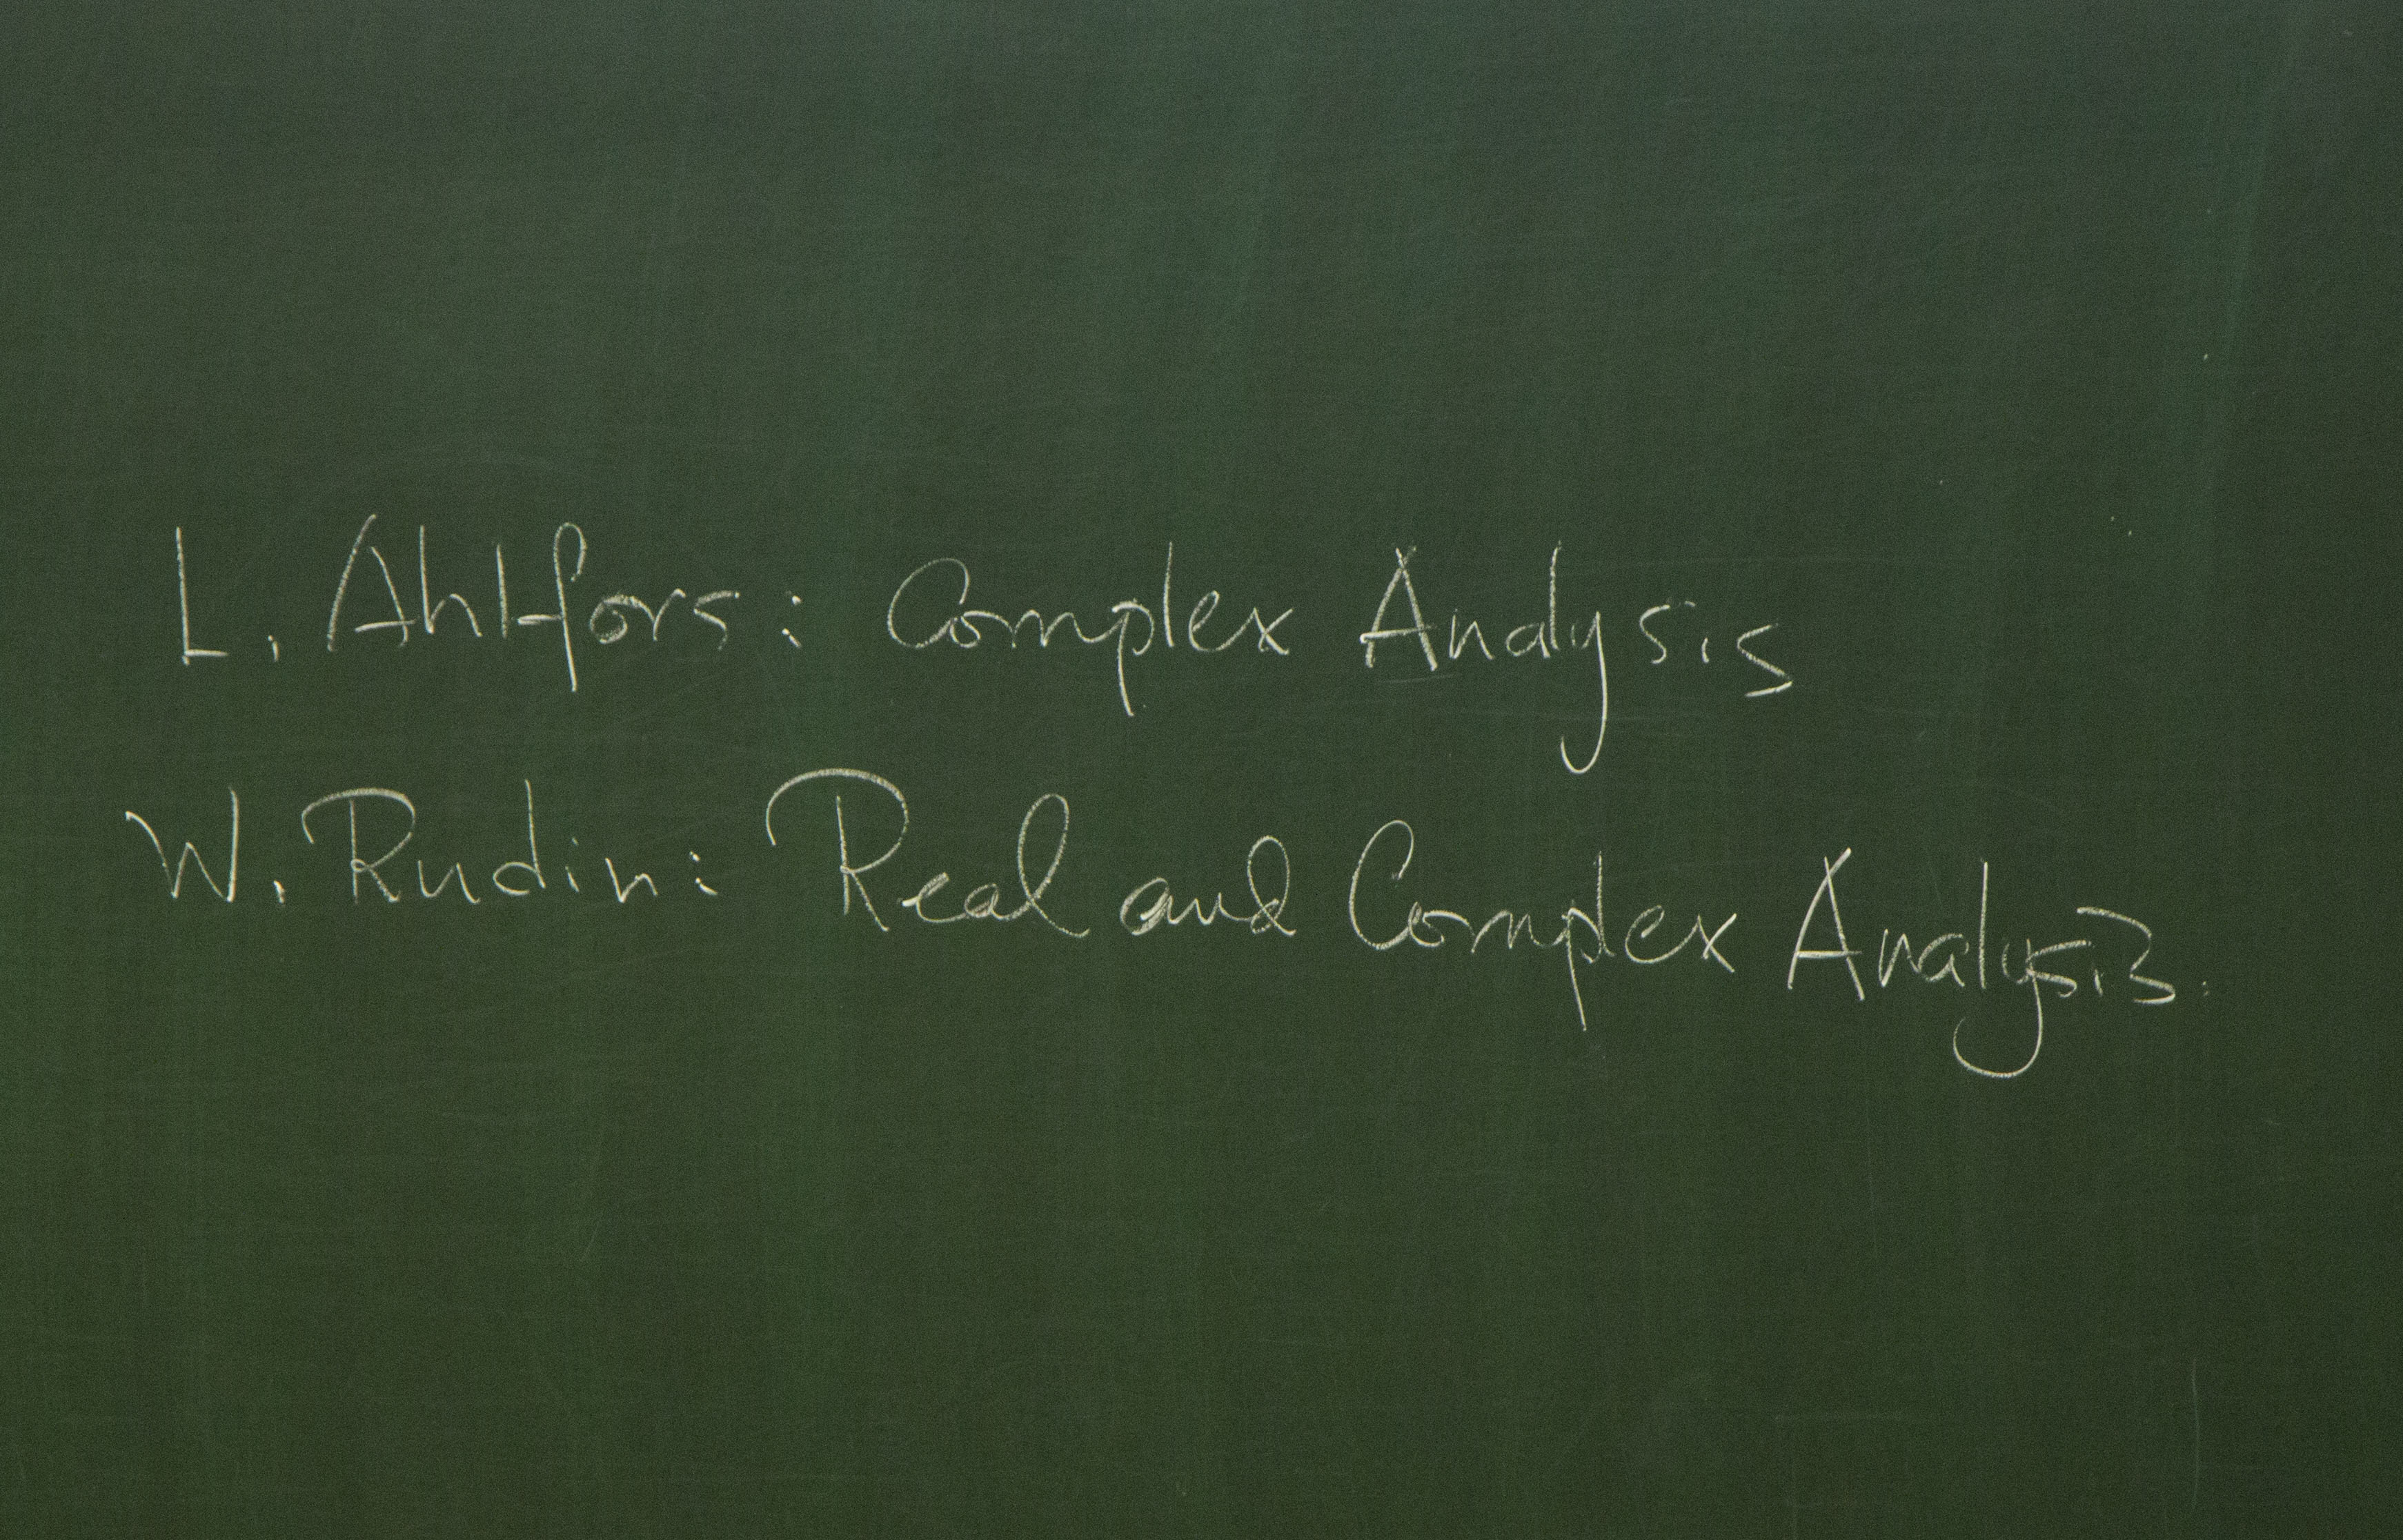 L. Ahlfors: Complex Analysis
W. Rudin: Real and Complex Analysis.